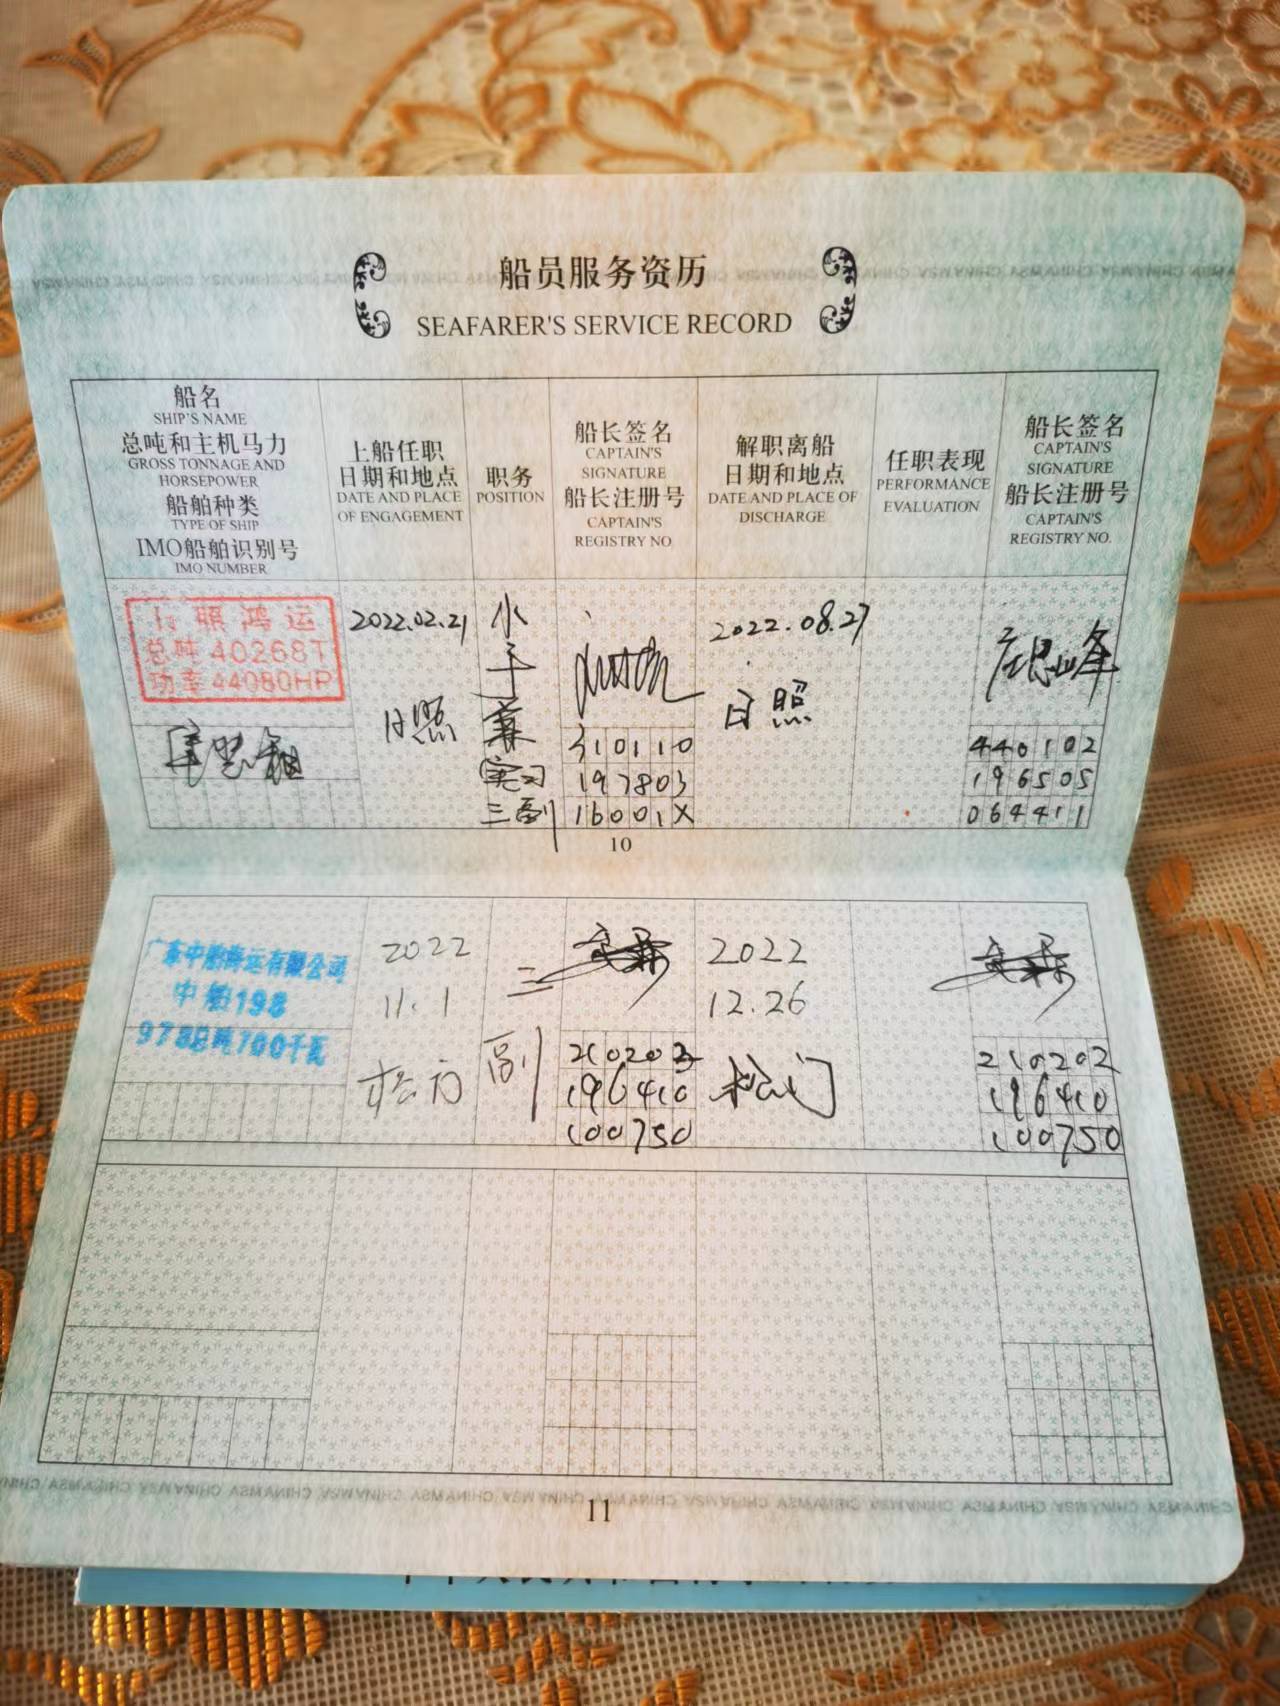 船员服务资历
SEAFARER'S SERVICE RECORD
船名
SHIP'S NAME
总吨和主机马力
GROSS TONNAGE AND
HORSEPOWER
船舶种类
TYPE OF SHIP
IMO船舶识别号
IMO NUMBER
上船任职
日期和地点
DATE AND PLACE
OF ENGAGEMENT
职务
POSITION
船长签名
CAPTAIN'S
SIGNATURE
船长注册号
CAPTAIN'S
REGISTRY NO.
解职离船
日期和地点
DATE AND PLACE OF
DISCHARGE
任职表现
PERFORMANCE
EVALUATION
船长签名
CAPTAIN'S
SIGNATURE
船长注册号
CAPTAIN'S
REGISTRY NO.
照鸿运
总吨40268T
功率44080HP
2022.02.21
日照
水
手
兼
实习
三副
310110
197803
16001X
2022.08.27
日照
440102
196505
064411
10
广东中舶海运有限公司
中舶198
978总吨700千瓦
2022
11.1
松门
三
副
210202
196410
100750
2022
12.26
松门
210202
196410
100750
11